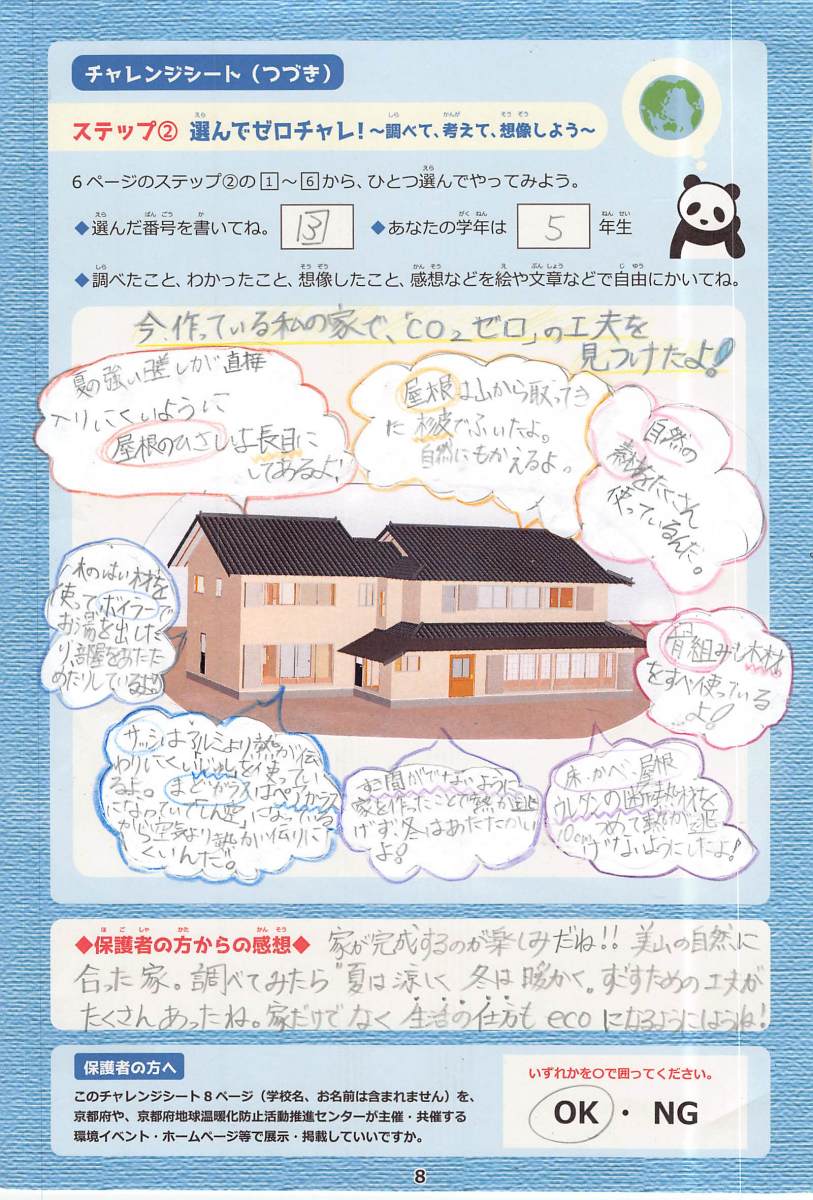 チャレンジシート（つづき）
ステップ② 選んでゼロチャレ！～調べて、考えて、想像しよう～
6ページのステップ②の1～6から、ひとつ選んでやってみよう。
◆選んだ番号を書いてね。 3 ◆あなたの学年は 5 年生
◆調べたこと、わかったこと、想像したこと、感想などを絵や文章などで自由にかいてね。
今、作っている私の家で、「CO2ゼロ」の工夫を
見つけたよ!
夏の強い日差しが直接
入りにくいように
屋根のひさしは長目に
してあるよ!
屋根は山から取ってき
た杉皮でふいたよ。
自然にもかえるよ。
自然の
素材をたくさん
使っているんだ。
木のはい材を
使ってボイラーで
お湯を出した
り、部屋をあたた
めたりしているよ
骨組みも木材
をすべ使っている
よ!
サッシはアルミより熱が伝
わりにくいじゅしを使ってい
るよ。まどガラスはペアガラス
になっていてしん空になっている
から空気より熱が伝りに
くいんだ。
すき間ができないように
家を作ったことで熱が逃
げず、冬はあたたかい
よ!
床・かべ・屋根
ウレタンの断熱材を
10cmつめて熱が逃
げないようにしたよ!
◆保護者の方からの感想◆ 家が完成するのが楽しみだね!! 美山の自然に
合った家。調べてみたら"夏は涼しく 冬は暖かく"すごすための工夫が
たくさんあったね。家だけでなく 生活の仕方も ecoになるようにしようね!
保護者の方へ
このチャレンジシート8ページ（学校名、お名前は含まれません）を、
京都府や、京都府地球温暖化防止活動推進センターが主催・共催する
環境イベント・ホームページ等で展示・掲載していいですか。
いずれかを○で囲ってください。
OK・NG
8